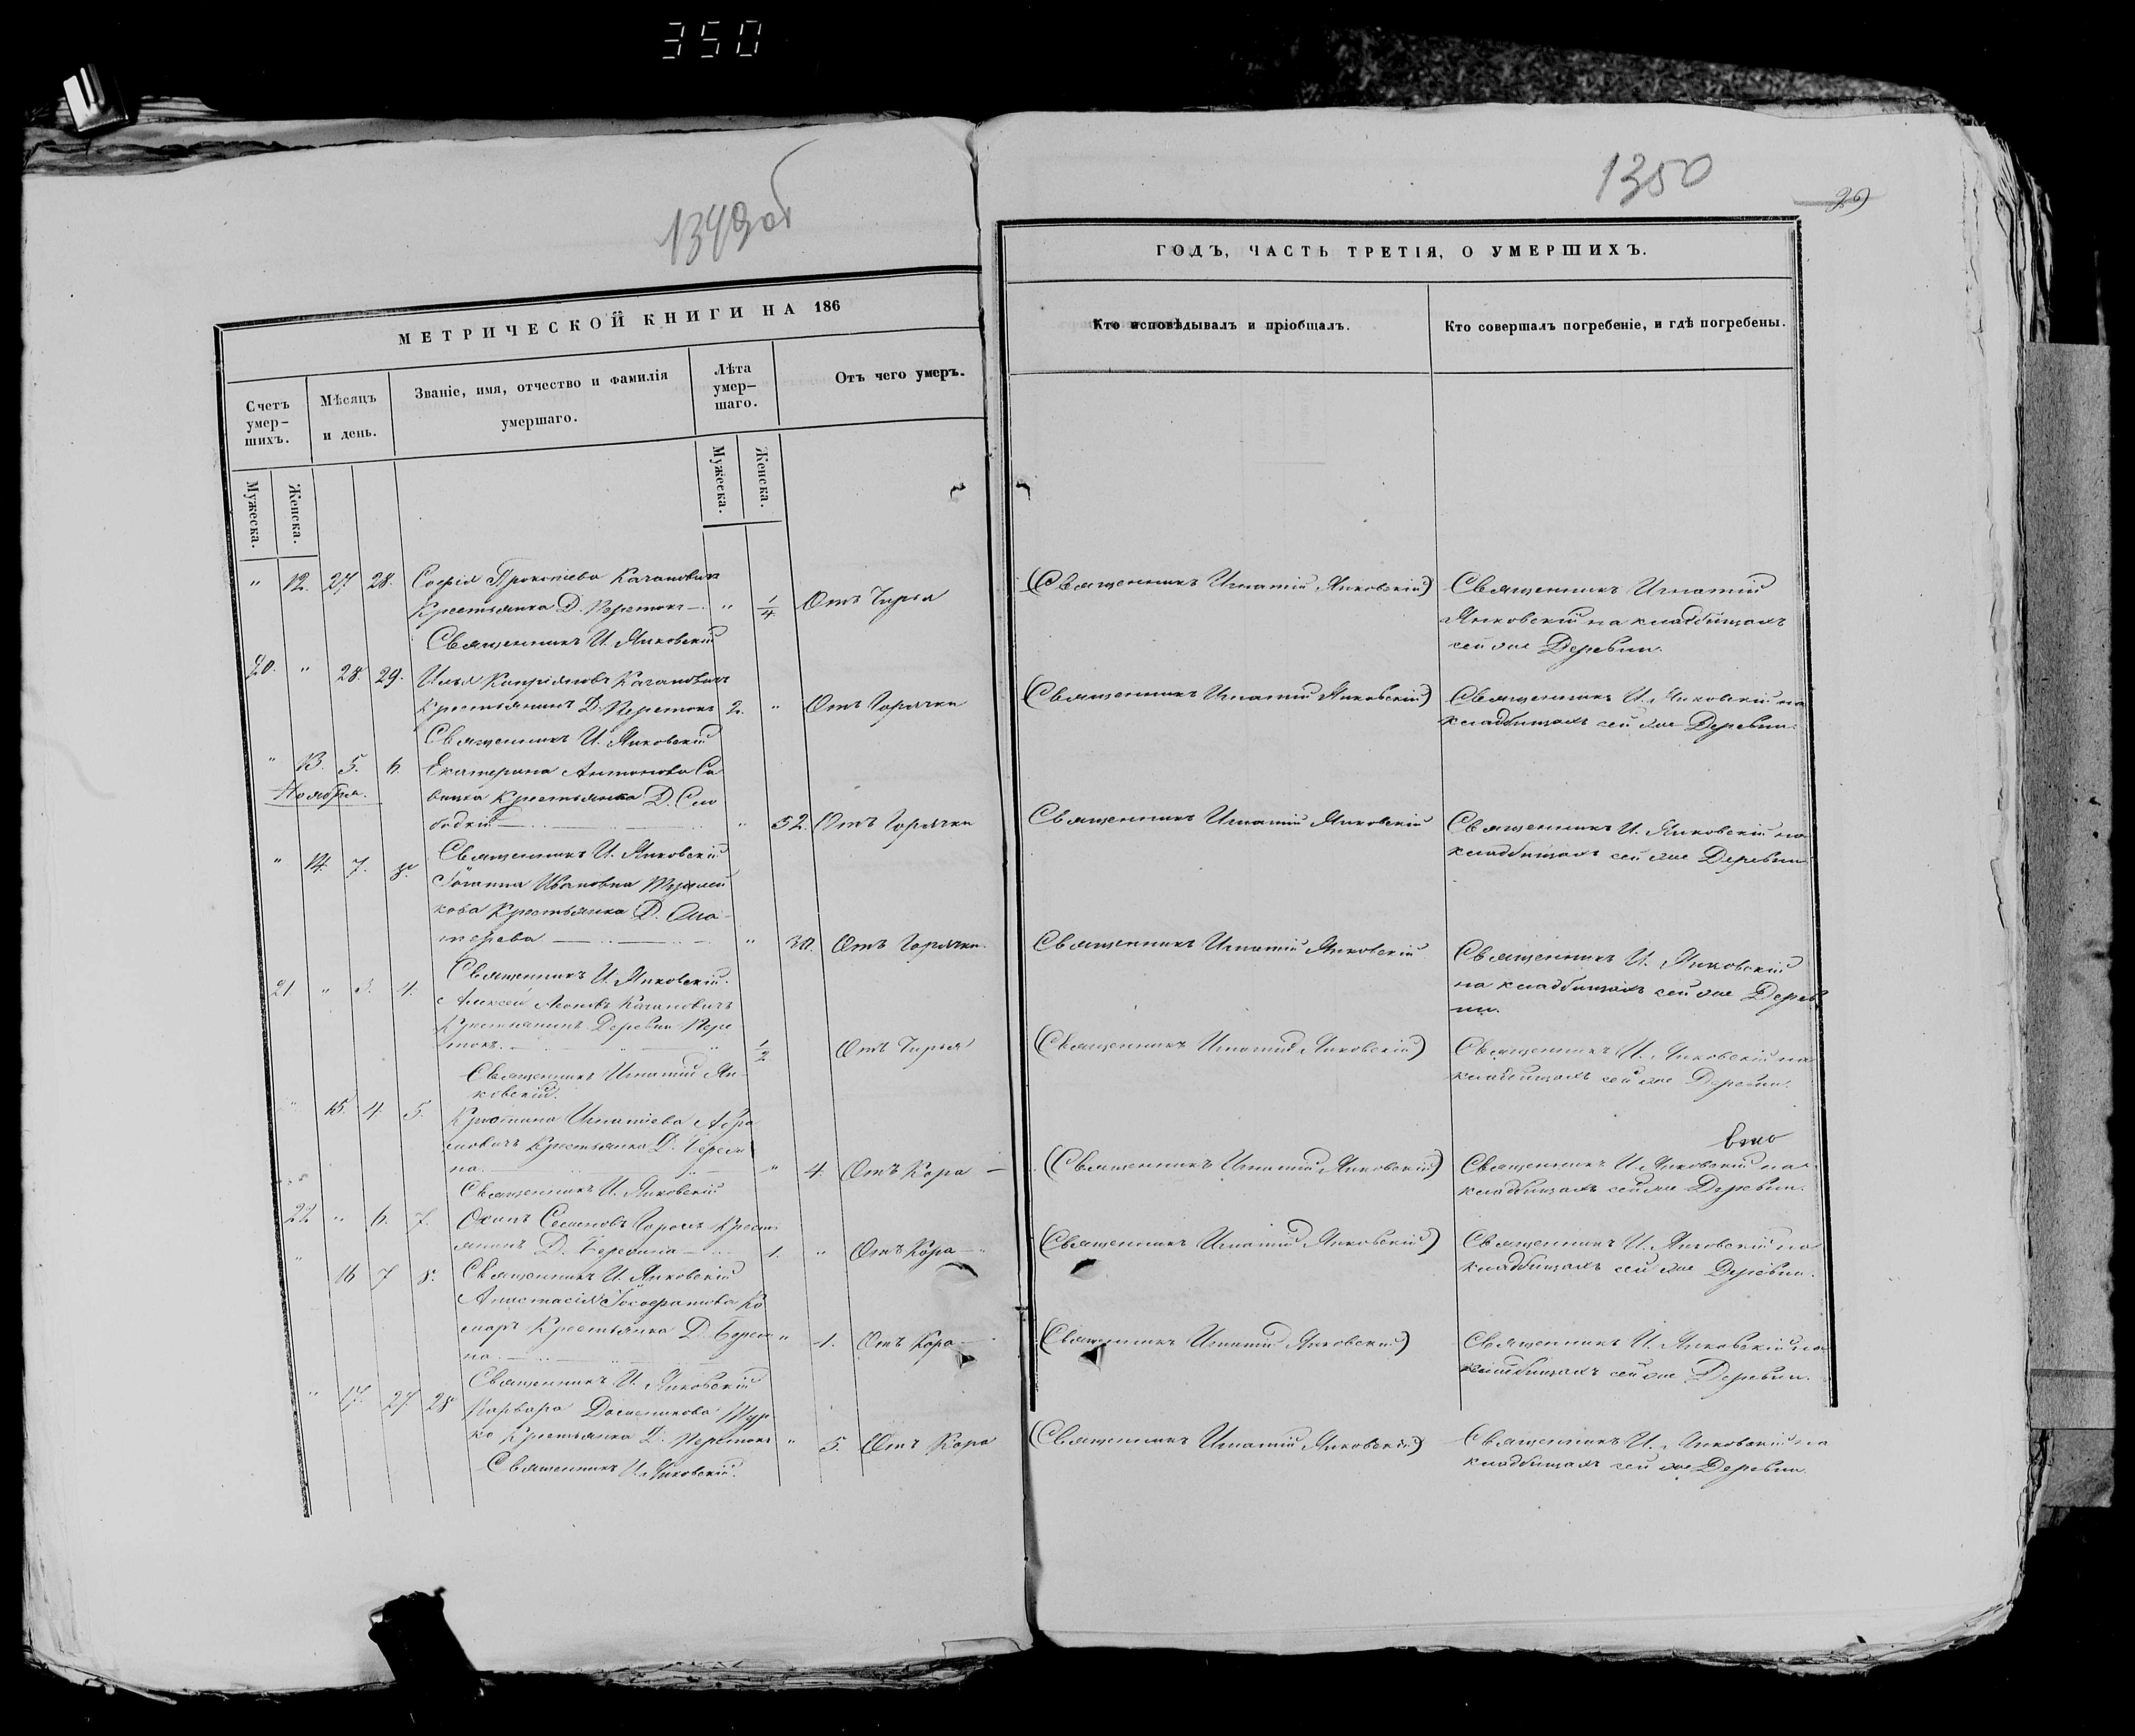 350
1349об
1350
МЕТРИЧЕСКОЙ КНИГИ НА 186
Счетъ умер-
шихъ.
Мѣсяцъ
и день.
Званіе, имя, отчество и фамилія
умершаго.
Лѣта
умер-
шаго.
Отъ чего умеръ.
Мужеска.
Женска.
Мужеска.
Женска.
" 12. 27 28. Софія Прокопіева Качановичъ
Крестьянка Д. Перетокъ — " 1/4 Отъ Чирья
Священникъ И. Янковскій
20. " 28. 29. Илья Кипріяновъ Качановичъ
Крестьянинъ Д. Перетокъ 2. " Отъ Горячки
Священникъ И. Янковскій
" 13. 5. 6. Екатерина Антонова Са
Ноября. вицка Крестьянка Д. Сло
бодки — " 52. Отъ Горячки
" 14. 7. 8. Священникъ И. Янковскій
Іоанна Ивановна
кова Крестьянка Д.
— " 30. Отъ Горячки.
Священникъ И. Янковскій.
21 " 3. 4. Алексей Леоновъ Качановичъ
Крестьянинъ Деревни Пере
токъ. — 1/2 Отъ Чирья
Священникъ Игнатій Ян-
ковскій.
" 15. 4. 5. Кристина Игнатіева Абра
мовичъ Крестьянка Д.
на. — " 4. Отъ Кора —
Священникъ И. Янковскій
22 " 6. 7. Осипъ Семеновъ Крест
янинъ Д. — 1. " Отъ Кора —
" 16 7 8. Священникъ И. Янковскій
Анастасія Ко
маръ Крестьянка Д. " 1. Отъ Кора —
на. —
Священникъ И. Янковскій
" 17. 27. 28 Варвара
ко Крестьянка Д. Перетокъ " 5. Отъ Кора
Священникъ И. Янковскій.
ГОДЪ, ЧАСТЬ ТРЕТІЯ, О УМЕРШИХЪ.
Кто исповѣдывалъ и пріобщалъ.
Кто совершалъ погребеніе, и гдѣ погребены.
(Священникъ Игнатій Янковскій)
Священникъ Игнатій
Янковскій на кладбищахъ
сей же Деревни.
(Священникъ Игнатій Янковскій)
Священникъ И. Янковскій на
кладбищахъ сей же Деревни.
Священникъ Игнатій Янковскій
Священникъ И. Янковскій на
кладбищахъ сей же Деревни
Священникъ Игнатій Янковскій
Священникъ И. Янковскій
на кладбищахъ сей же Дерев
ни.
(Священникъ Игнатій Янковскій)
Священникъ И. Янковскій на
кладбищахъ сей же Деревни.
(Священникъ Игнатій Янковскій)
Священникъ И. Янковскій на
кладбищахъ сей же Деревни.
(Священникъ Игнатій Янковскій)
Священникъ И. Янковскій на
кладбищахъ сей же Деревни.
(Священникъ Игнатій Янковскій)
Священникъ И. Янковскій на
кладбищахъ сей же Деревни.
(Священникъ Игнатій Янковскій)
Священникъ И. Янковскій на
кладбищахъ сей же Деревни